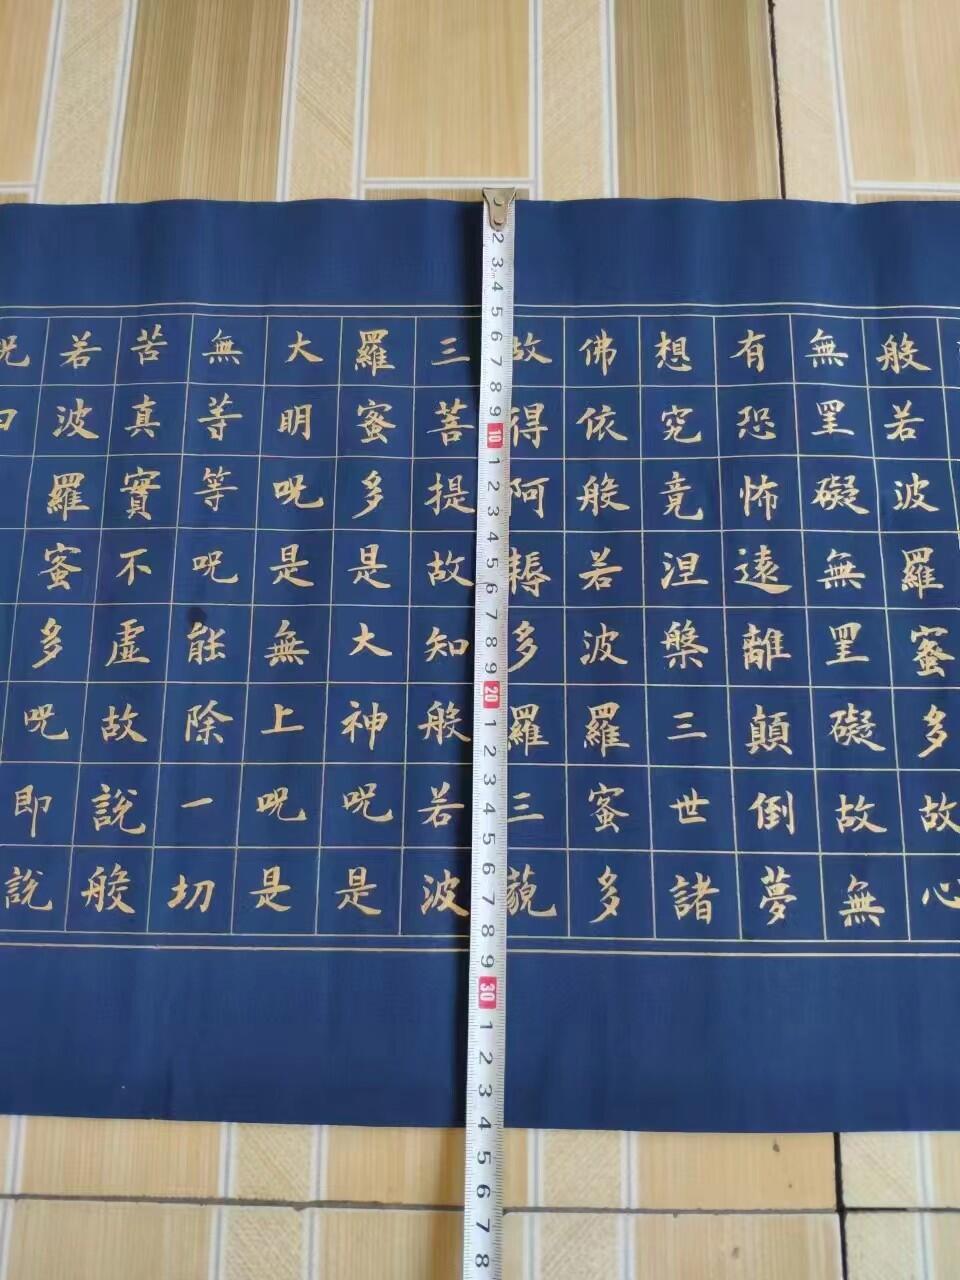 般若波羅蜜多故心
無罣礙無罣礙故無
有恐怖遠離顛倒夢
想究竟涅槃三世諸
佛依般若波羅蜜多
故得阿耨多羅三藐
三菩提故知般若波
羅蜜多是大神呪是
大明呪是無上呪是
無等等呪能除一切
苦真實不虛故說般
若波羅蜜多呪即說
呪曰
2 3 4 5 6 7 8 9 10 1 2 3 4 5 6 7 8 9 20 1 2 3 4 5 6 7 8 9 30 1 2 3 4 5 6 7 8